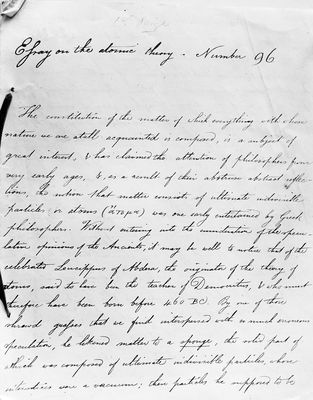 Essay on the atomic theory. Number 96
The constitution of the matter of which everything with whose
nature we are at all acquainted is composed, is a subject of
great interest, & has claimed the attention of philosophers from
very early ages, & as a result of their abstruse abstract reflec-
tions, the notion that matter consists of ultimate indivisible
particles or atoms ("ατομα) was one early entertained by Greek
philosophers. Without entering into the enumeration of the specu-
lative opinions of the Ancients, it may be well to notice that of the
celebrated Leucippus of Abdera, the originator of the theory of
atoms, said to have been the teacher of Democritus, & who must
therefore have been born before 460 BC. By one of those
shrewd guesses that we find interspersed with so much erroneous
speculation, he likened matter to a sponge, the solid part of
which was composed of ultimate indivisible particles, whose
interstices were a vacuum; these particles he supposed to be